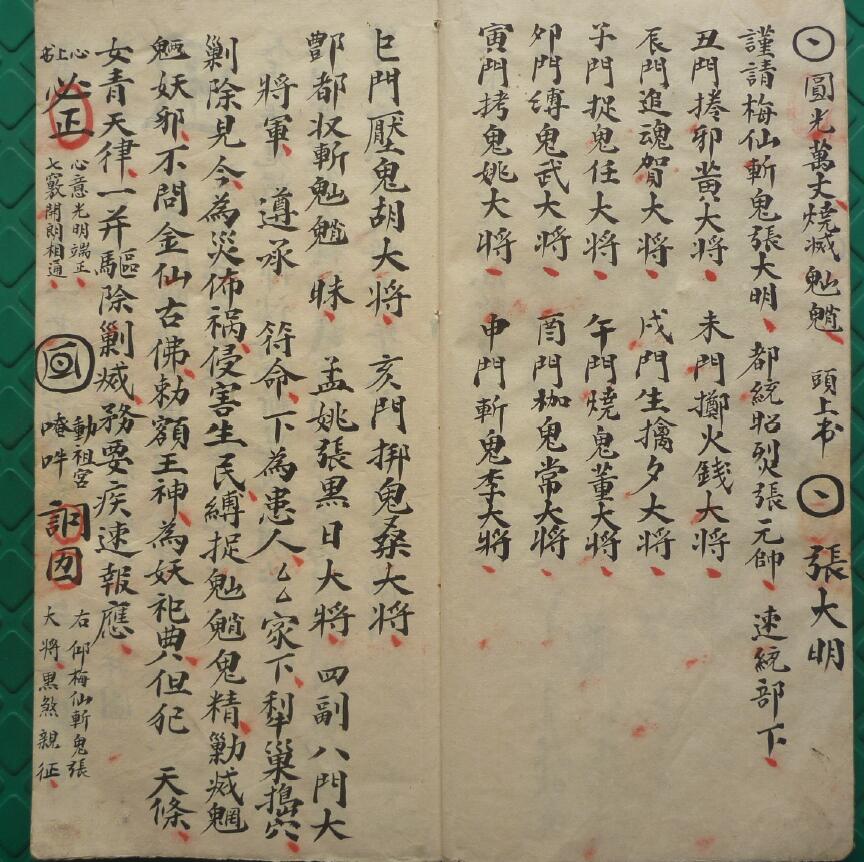 圓光萬丈燒滅魈魈 頭上书 張大明
謹請梅仙斬鬼張大明、都統昭烈張元帥、速統部下、
丑門捲邪黃大將、 未門擲火錢大將、
辰門追魂賀大將、 戌門生擒夕大將、
子門捉鬼任大將、 午門燒鬼董大將、
夘門縛鬼武大將、 酉門枷鬼常大將、
寅門拷鬼姚大將、 申門斬鬼李大將、
巳門壓鬼胡大將、 亥門挷鬼桑大將
酆都収斬魈 昧、 孟姚張黑日大將、四副八門大
將軍、 遵承 符命、下為患人、厶厶家下、犁巢搗穴、
剿除見今、為災佈禍、侵害生民、縛捉魈鬼精、勦滅魍
魎妖邪、不問金仙古佛、勅額王神、為妖祀典、但犯 天條
女青天律、一并驅除剿滅、務要疾速報應、
心上书 心正 心意光明端正、七竅開朗相通、 回 動祖宮 唵吽 右仰梅仙斬鬼張大將、黑煞親征、